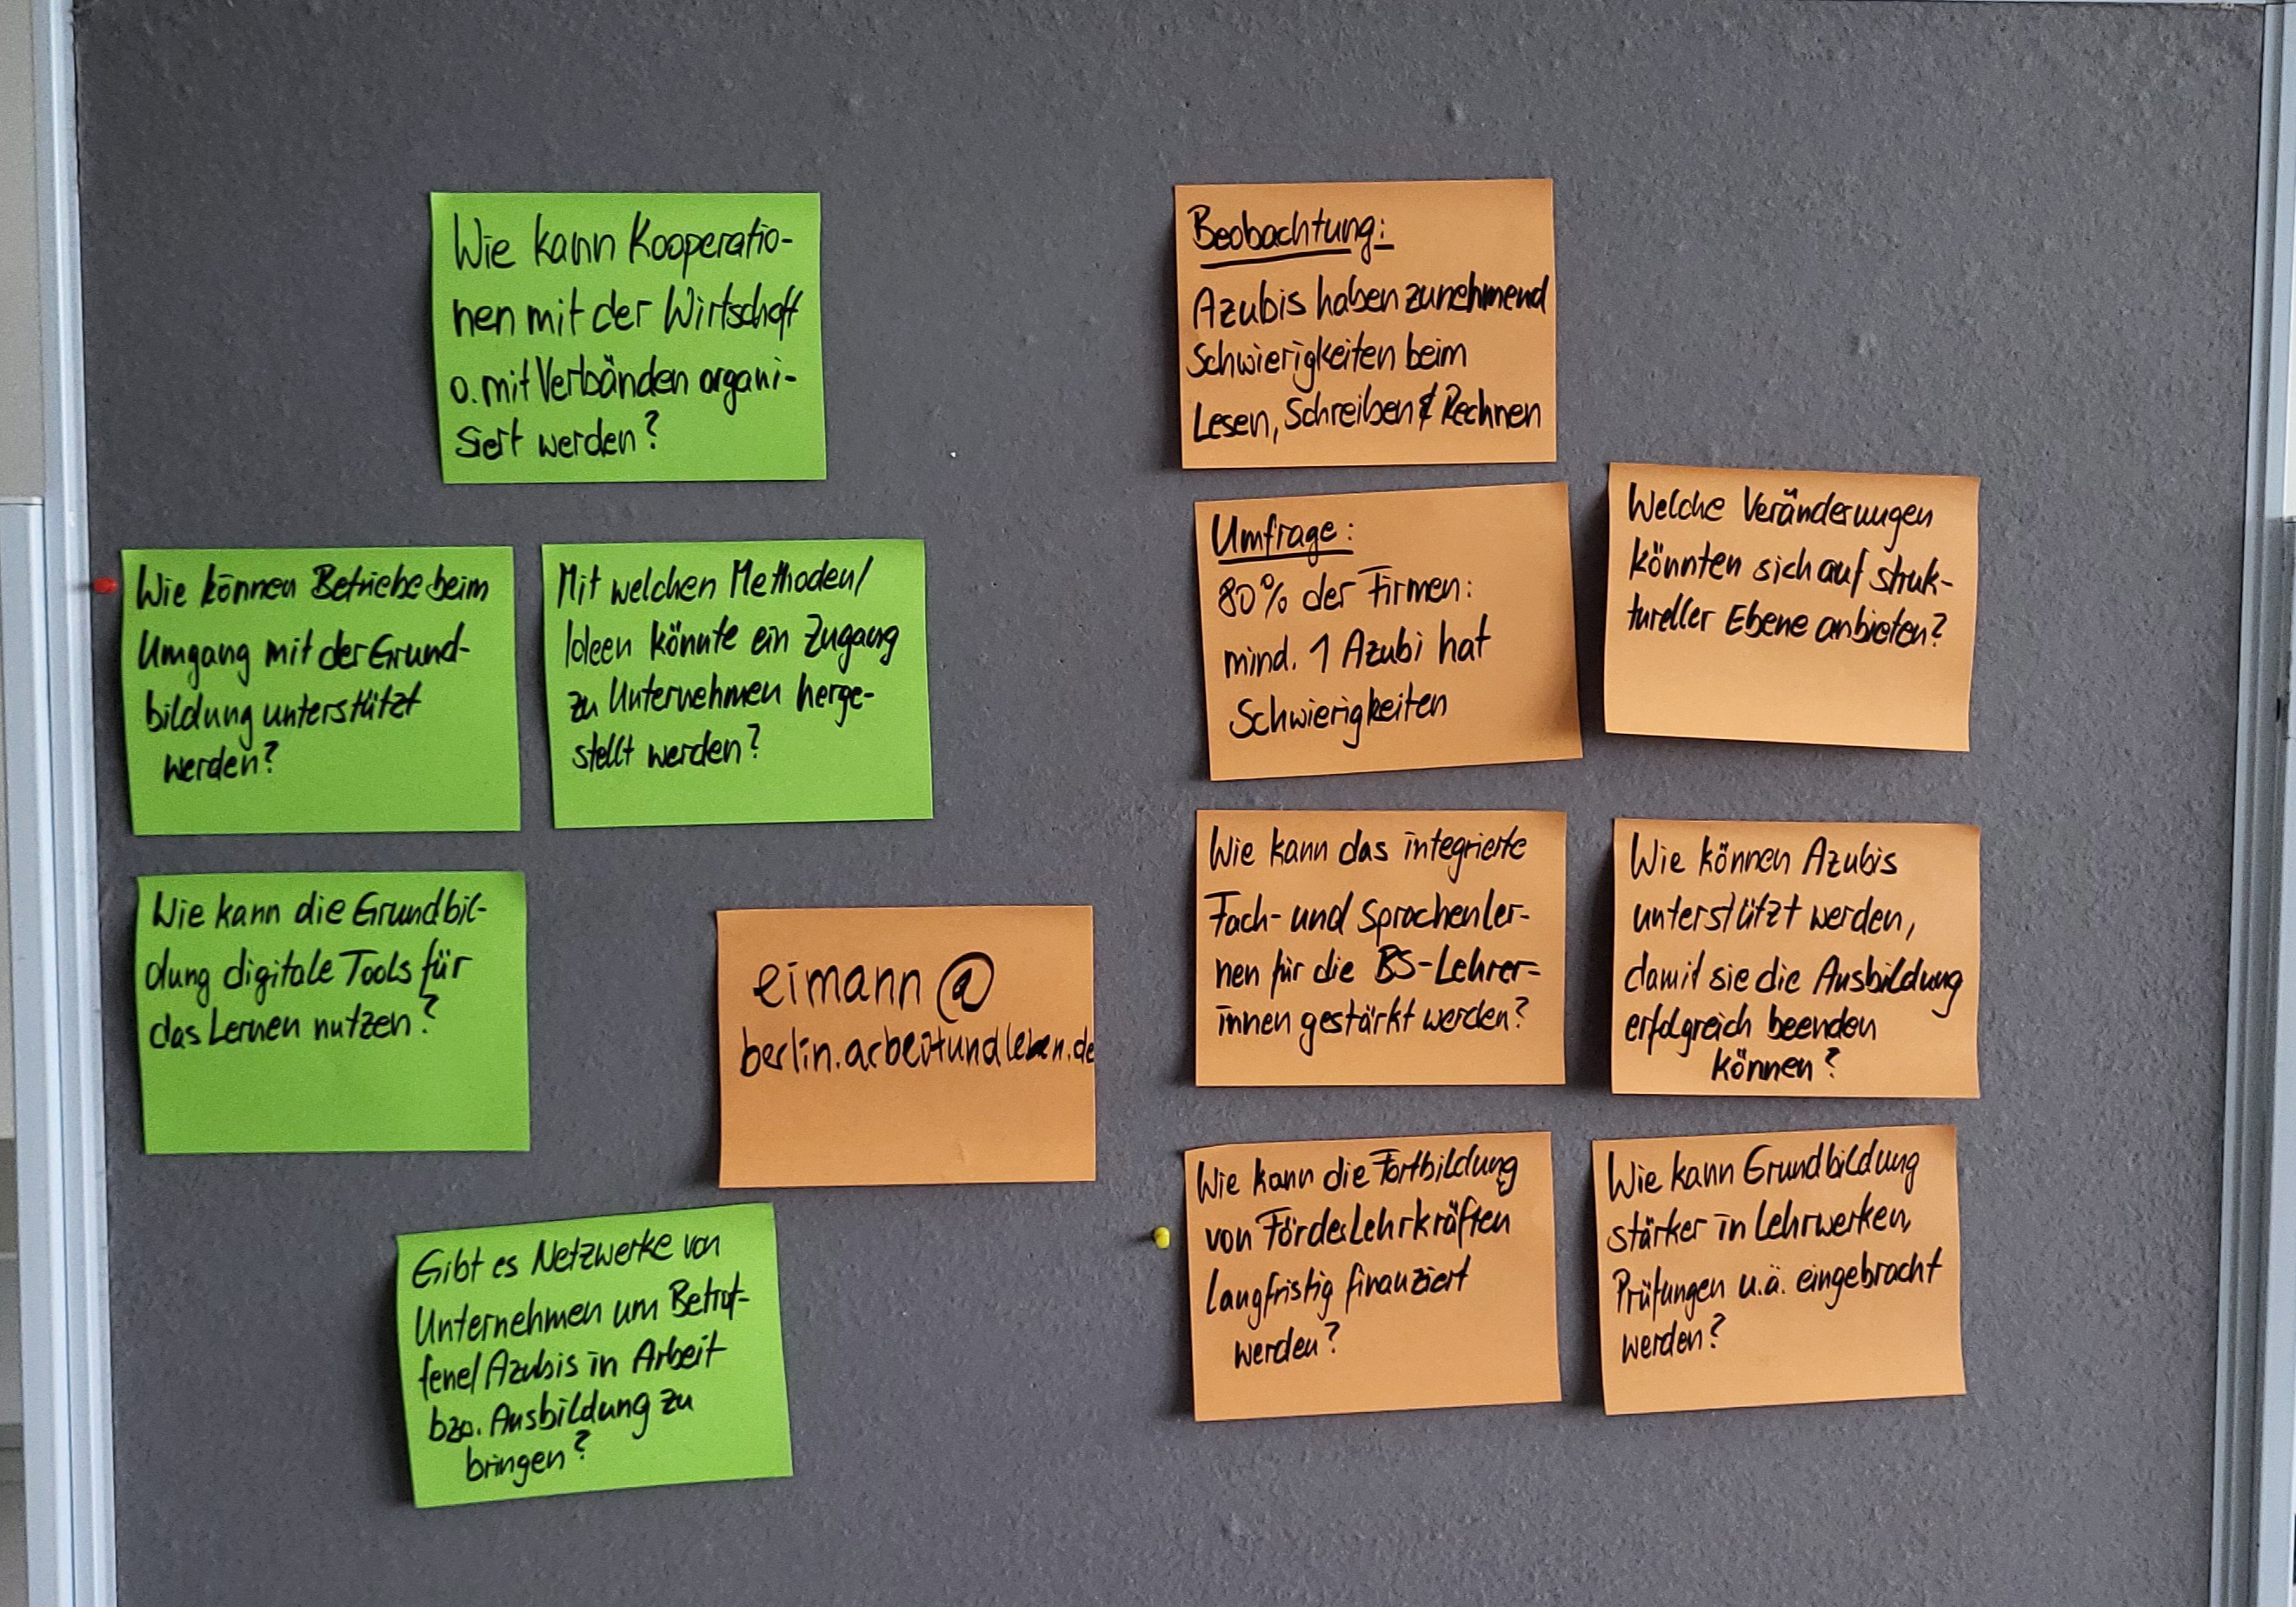 Wie kann Kooperatio-
nen mit der Wirtschaft
o. mit Verbänden organi-
siert werden?
Wie können Betriebe beim
Umgang mit der Grund-
bildung unterstützt
werden?
Mit welchen Methoden/
Ideen könnte ein Zugang
zu Unternehmen herge-
stellt werden?
Wie kann die Grundbil-
dung digitale Tools für
das Lernen nutzen?
eimann@
berlin.arbeitundleben.de
Gibt es Netzwerke von
Unternehmen um Betrof-
fene/Azubis in Arbeit
bzw. Ausbildung zu
bringen?
Beobachtung:
Azubis haben zunehmend
Schwierigkeiten beim
Lesen, Schreiben & Rechnen
Umfrage:
80% der Firmen:
mind. 1 Azubi hat
Schwierigkeiten
Welche Veränderungen
könnten sich auf struk-
tureller Ebene anbieten?
Wie kann das integrierte
Fach- und Sprachenler-
nen für die BS-Lehrer-
innen gestärkt werden?
Wie können Azubis
unterstützt werden,
damit sie die Ausbildung
erfolgreich beenden
können?
Wie kann die Fortbildung
von Förderlehrkräften
langfristig finanziert
werden?
Wie kann Grundbildung
stärker in Lehrwerken,
Prüfungen u.ä. eingebracht
werden?